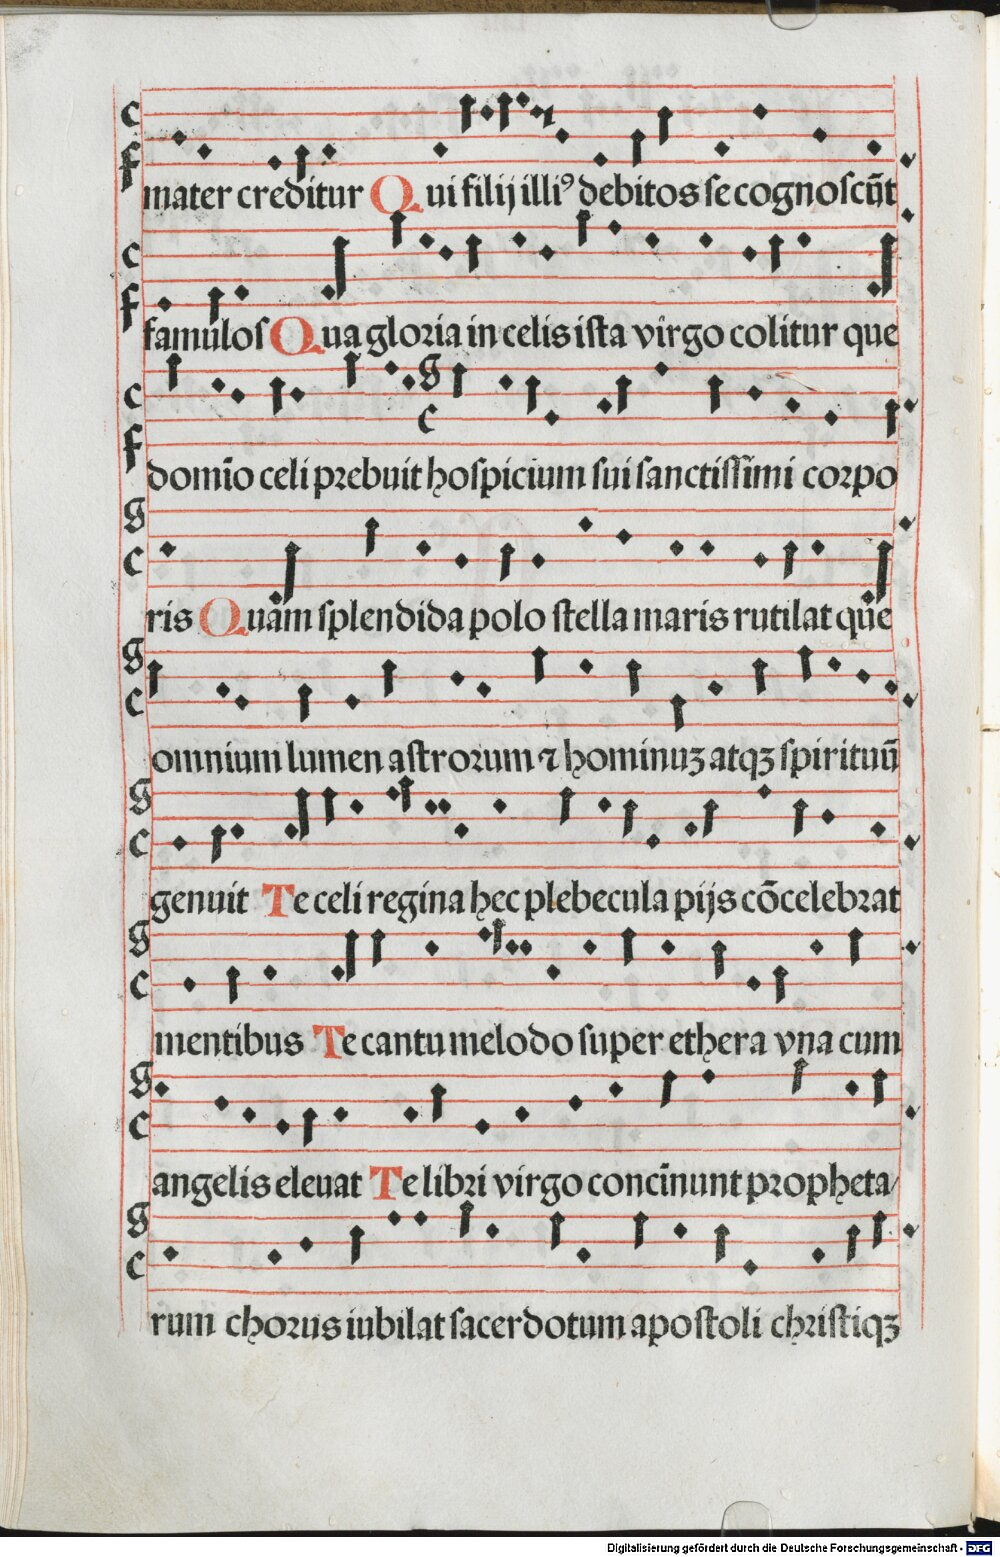 c
f
mater creditur Qui filij illiꝰ debitos se cognoscūt
c
f
famulos Qua gloria in celis ista virgo colitur que
c
f
g
c
domīo celi prebuit hospicium sui sanctissimi corpo
g
c
ris Quam splendida polo stella maris rutilat que
g
c
omnium lumen astrorum ⁊ hominuꝫ atqꝫ spirituū
g
c
genuit Te celi regina hec plebecula pijs cōcelebrat
g
c
mentibus Te cantu melodo super ethera vna cum
g
c
angelis eleuat Te libri virgo concīnunt propheta/
g
c
rum chorus iubilat sacerdotum apostoli christiqꝫ
Digitalisierung gefördert durch die Deutsche Forschungsgemeinschaft - DFG